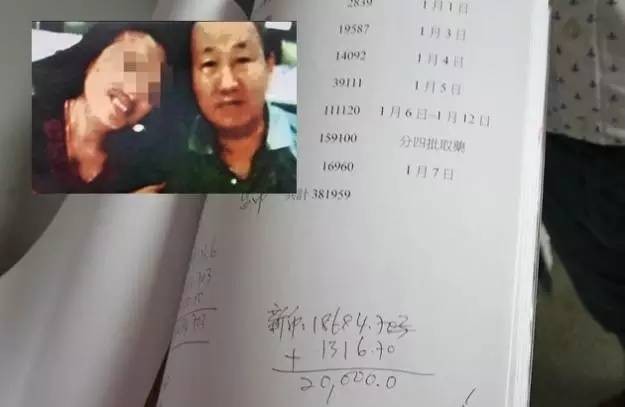 2839 1月1日
19587 1月3日
14092 1月4日
39111 1月5日
111120 1月6日-1月12日
159100 分四批取藥
16960 1月7日
共計 381959
新币: 18684.703
+ 1316.70
20,000.0